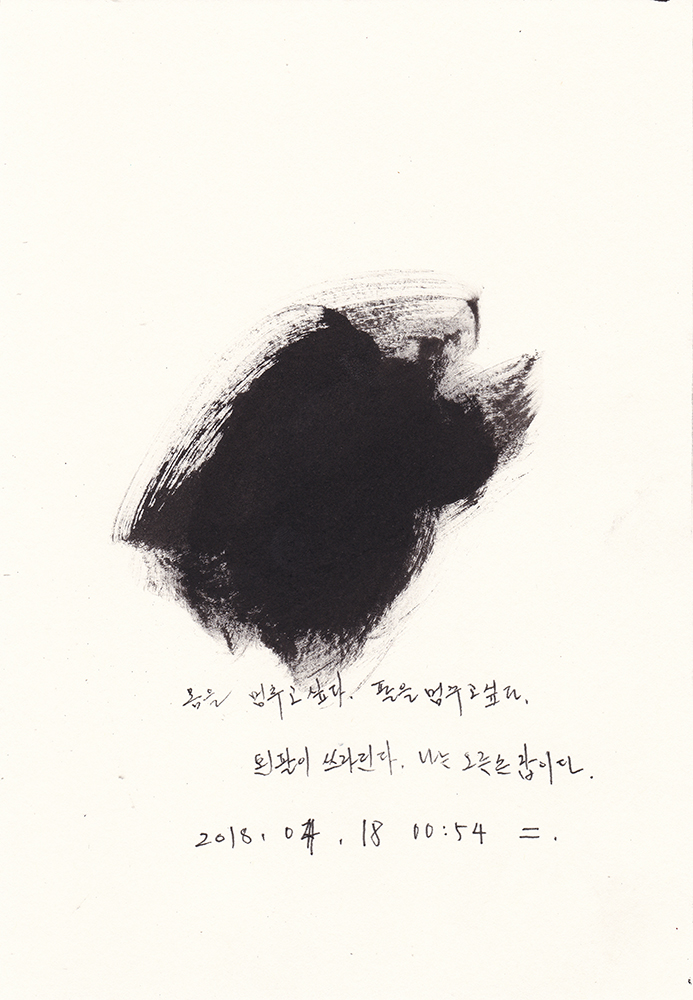 몸을 멈추고싶다. 팔을 멈추고싶다.
왼팔이 쓰라린다. 나는 오른손잡이다.
2018. 04. 18 00:54 =.